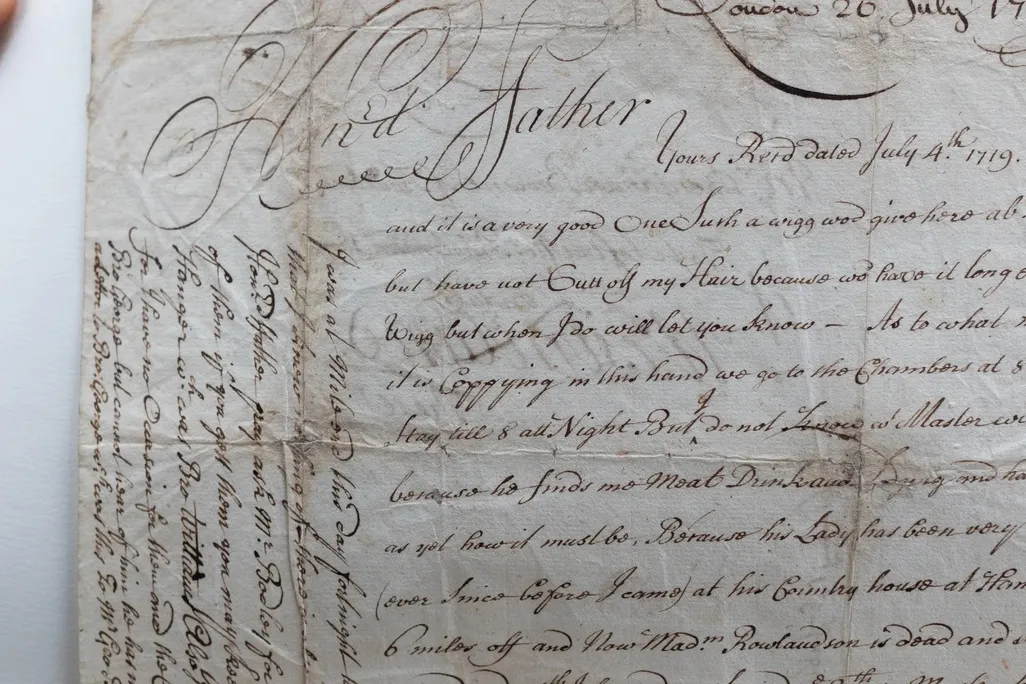 London 26 July 17
Hond. Father
Yours Recd dated July 4.th 1719.
and it is a very good One Such a wigg wod give here ab
but have not Cutt off my Hair because we have it long e
Wigg but when I do will let you know – As to what
it is Coppying in this hand we go to the Chambers at 8
Stay till 8 att Night But I do not Know wt Master wo
because he finds me Meat Drink and and ha
as yet how it must be, Because his Lady has been very
(ever Since before I came) at his Country house at Ham
6 miles off and Now Madm Rowlandson is dead and
I was at this Day fortnight
may know
Hond ffather pray ask Mr. Bodley for
of them if you gett them you may
Hanger wch was Bro William
for I have no Occasion for them and the
Bro George but cannot hear of him he has
Bro George